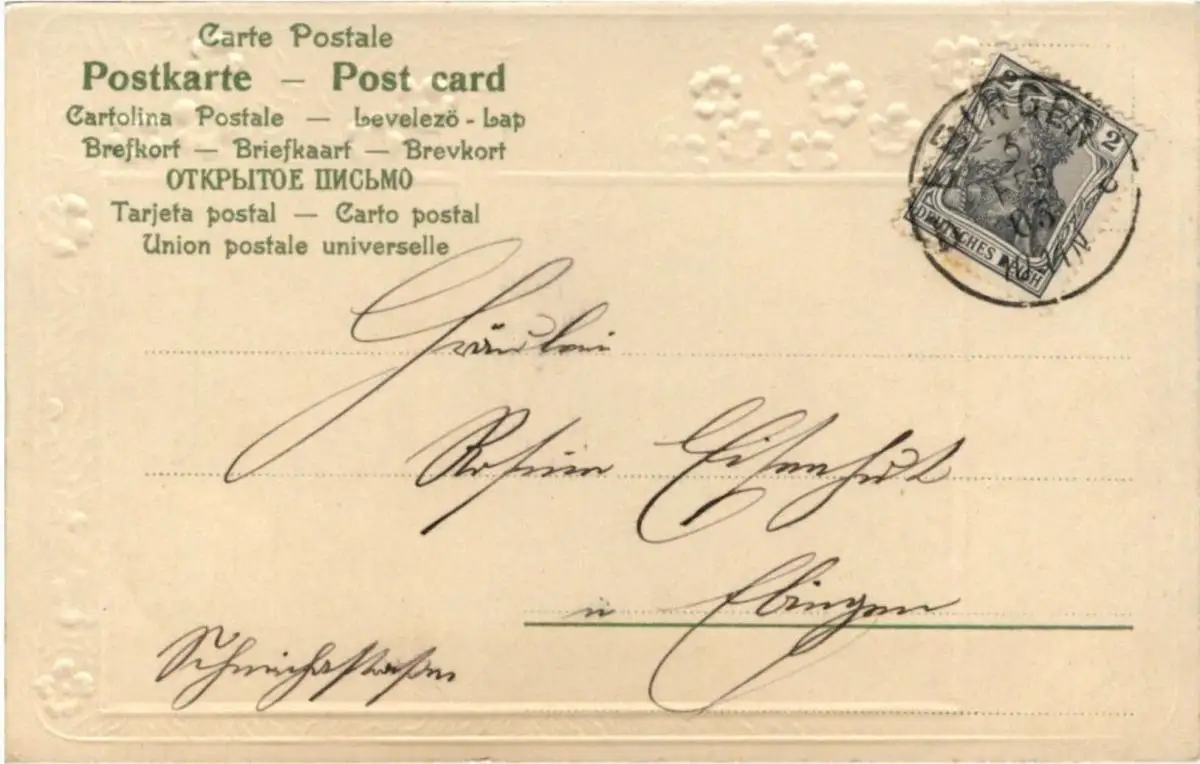 Carte Postale
Postkarte — Post card
Cartolina Postale — Levelező - Lap
Brefkort — Briefkaart — Brevkort
ОТКРЫТОЕ ПИСЬМО
Tarjeta postal — Carto postal
Union postale universelle
2 2
EBINGEN
5
FEB
05
DEUTSCHES REICH
Fräulein
Rosine Eisenhut
in Ebingen